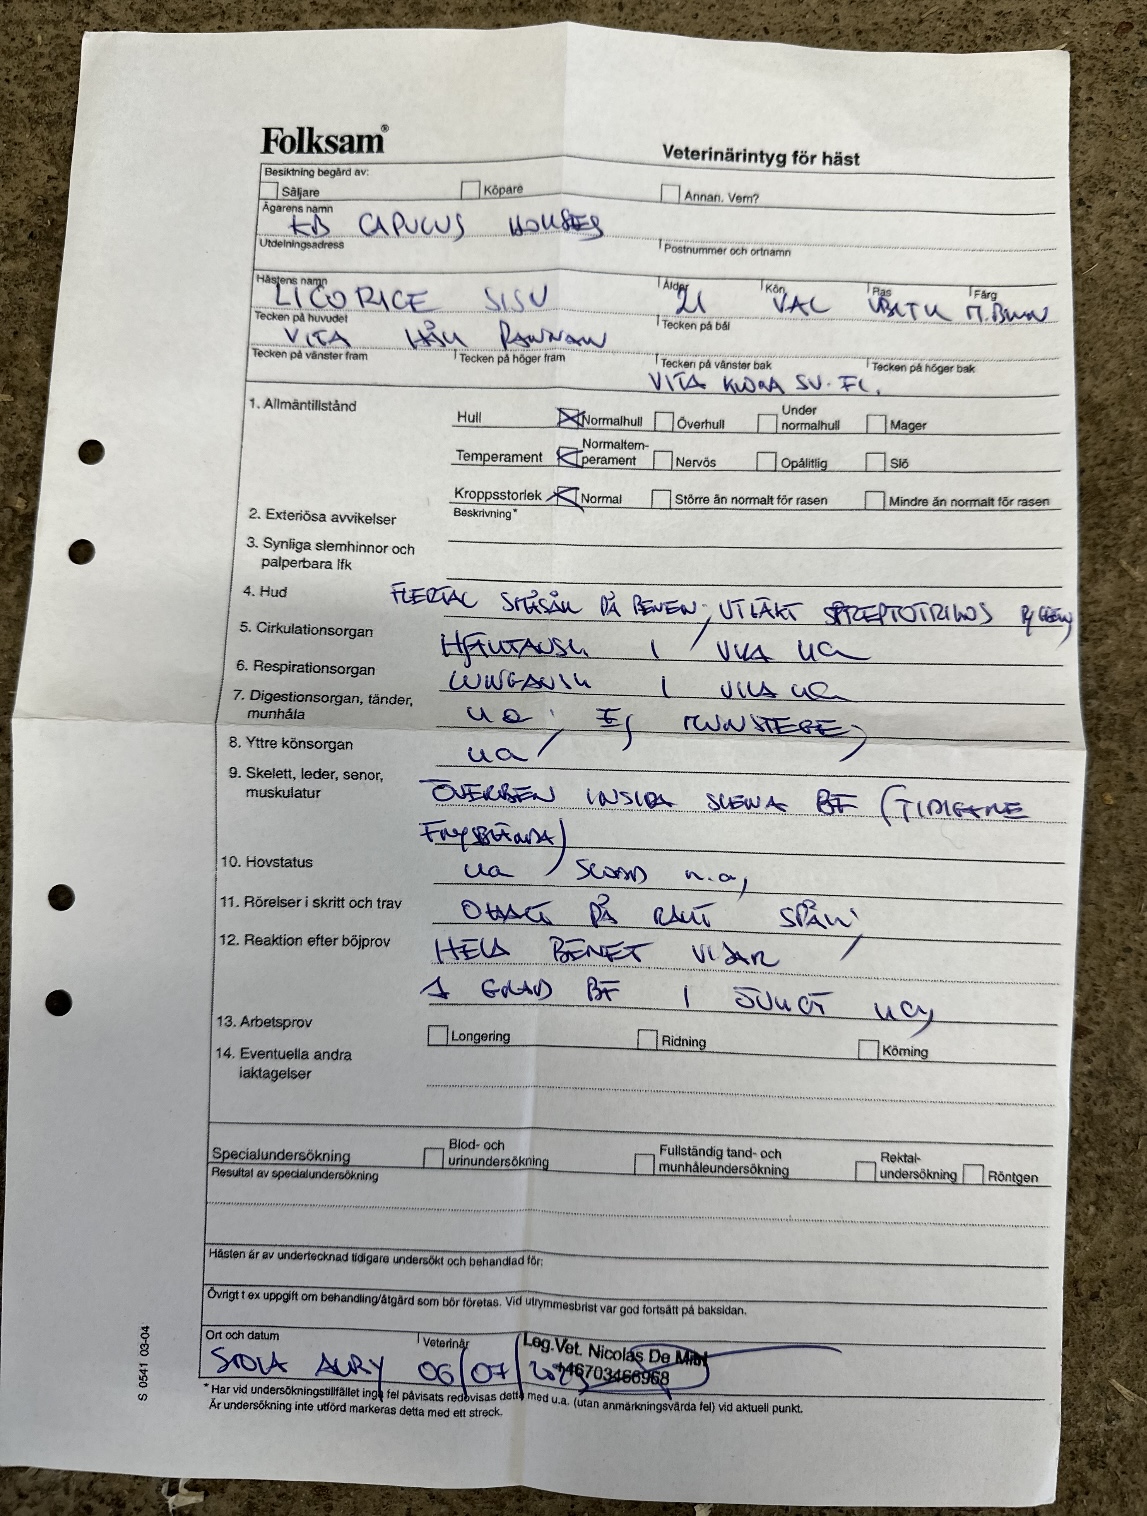 Folksam®
Veterinärintyg för häst
Besiktning begärd av:
Säljare Köpare Annan. Vem?
Ägarens namn
KB CAPUCUS HORSES
Utdelningsadress Postnummer och ortnamn
Hästens namn Ålder Kön Ras Färg
LICORICE SISU 21 VAL VBLTH M.BRUN
Tecken på huvudet Tecken på bål
VITA HÅR PANNAN
Tecken på vänster fram Tecken på höger fram Tecken på vänster bak Tecken på höger bak
VITA
1. Allmäntillstånd
Hull Normalhull Överhull Under normalhull Mager
Temperament Normaltem-perament Nervös Opålitlig Slö
Kroppsstorlek Normal Större än normalt för rasen Mindre än normalt för rasen
2. Exteriösa avvikelser Beskrivning*
3. Synliga slemhinnor och
palperbara lfk
4. Hud FLERTAL SMÅSÅR PÅ BENEN, UTLÄKT
5. Cirkulationsorgan HJÄRTAUSK I VILA ua
6. Respirationsorgan LUNGAUSK I VILA ua
7. Digestionsorgan, tänder,
munhåla ua, EJ MUNSTEGE
8. Yttre könsorgan ua
9. Skelett, leder, senor,
muskulatur ÖVERBEN INSIDA SKENA BF (TIDIGARE
FRYSBRÄNDA)
10. Hovstatus ua SKODD
11. Rörelser i skritt och trav OHALT PÅ RAKT SPÅR
12. Reaktion efter böjprov HELA BENET VISAR
1 GRAD BF I ÖVRIGT ua
13. Arbetsprov Longering Ridning Körning
14. Eventuella andra
iaktagelser
Specialundersökning Blod- och urinundersökning Fullständig tand- och munhåleundersökning Rektal-undersökning Röntgen
Resultat av specialundersökning
Hästen är av undertecknad tidigare undersökt och behandlad för:
Övrigt t ex uppgift om behandling/åtgärd som bör företas. Vid utrymmesbrist var god fortsätt på baksidan.
Ort och datum Veterinär Leg.Vet. Nicolas De Mitri
STORA ALBY 06/07/ +46703466968
* Har vid undersökningstillfället inga fel påvisats redovisas detta med u.a. (utan anmärkningsvärda fel) vid aktuell punkt.
Är undersökning inte utförd markeras detta med ett streck.
S 0541 03-04